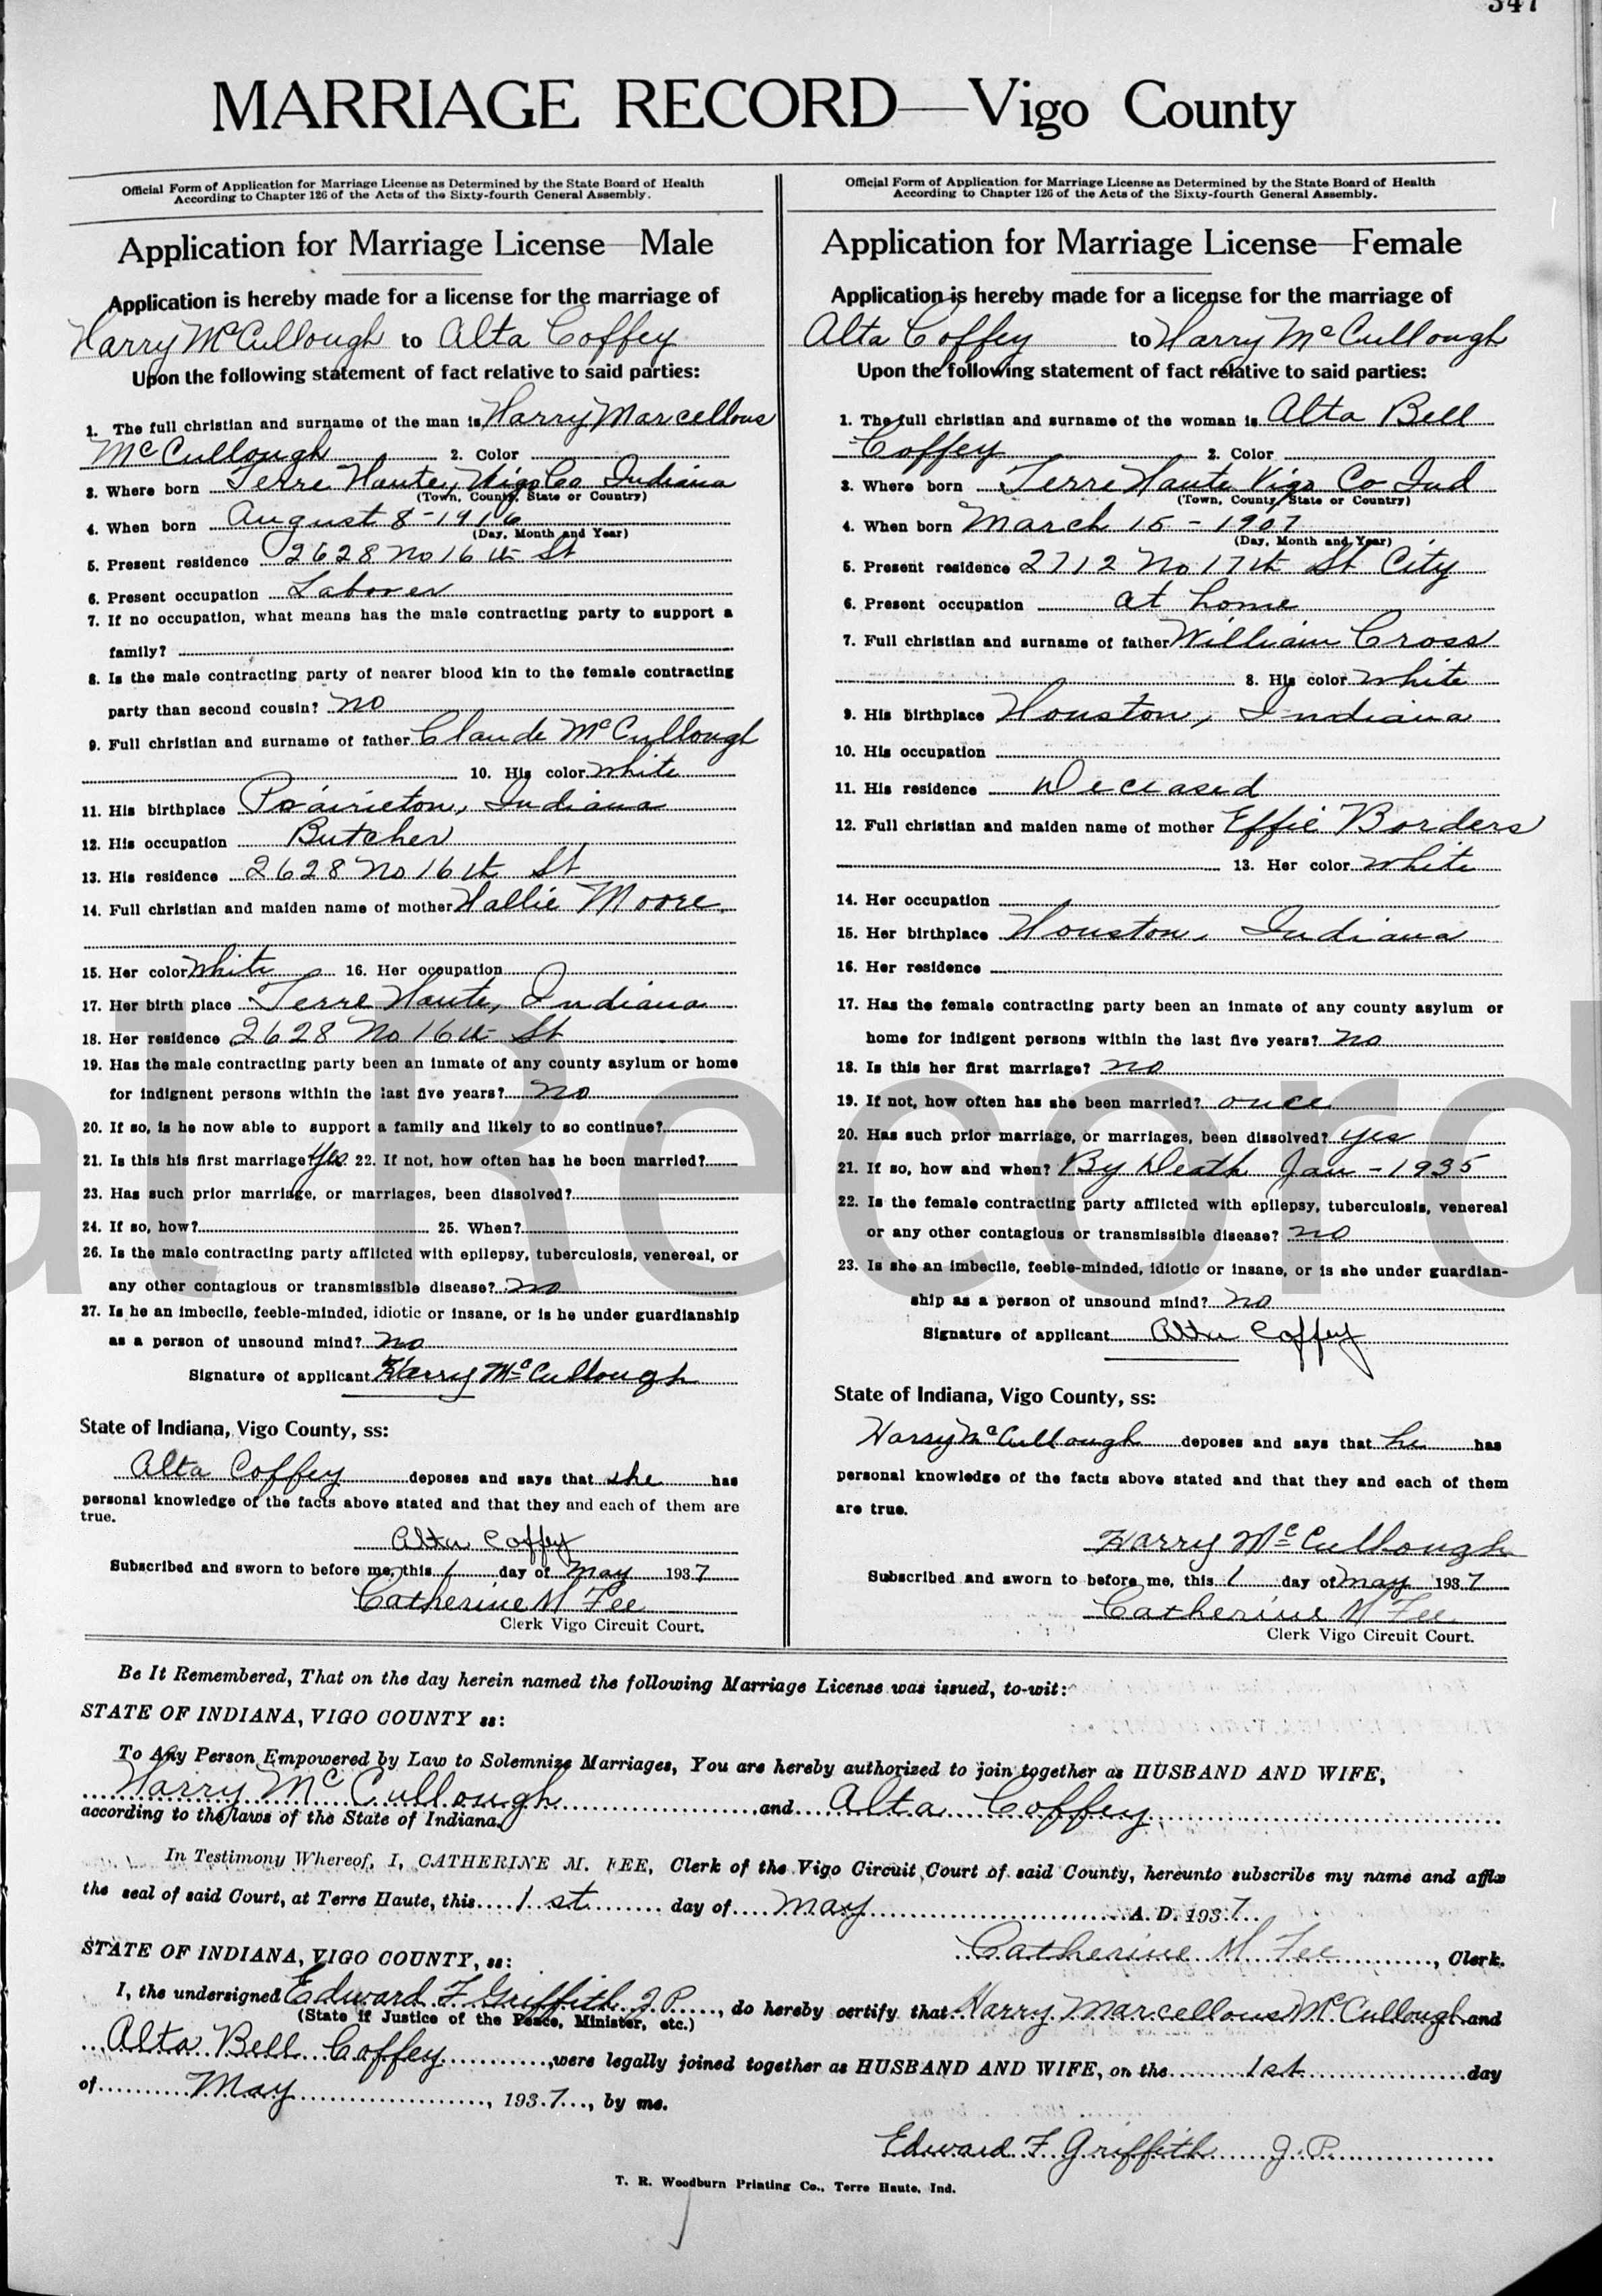 347
MARRIAGE RECORD—Vigo County
Official Form of Application for Marriage License as Determined by the State Board of Health
According to Chapter 126 of the Acts of the Sixty-fourth General Assembly.
Application for Marriage License—Male
Application is hereby made for a license for the marriage of
Harry McCullough to Alta Coffey
Upon the following statement of fact relative to said parties:
1. The full christian and surname of the man is Harry Marcellous
McCullough 2. Color
3. Where born Terre Haute, Vigo Co Indiana
(Town, County, State or Country)
4. When born August 8-1916
(Day, Month and Year)
5. Present residence 2628 No 16th St
6. Present occupation Laborer
7. If no occupation, what means has the male contracting party to support a
family?
8. Is the male contracting party of nearer blood kin to the female contracting
party than second cousin? no
9. Full christian and surname of father Claude McCullough
10. His color white
11. His birthplace Prairieton, Indiana
12. His occupation Butcher
13. His residence 2628 No 16th St
14. Full christian and maiden name of mother Hallie Moore
15. Her color White 16. Her occupation
17. Her birth place Terre Haute, Indiana
18. Her residence 2628 No 16th St
19. Has the male contracting party been an inmate of any county asylum or home
for indignent persons within the last five years? no
20. If so, is he now able to support a family and likely to so continue?
21. Is this his first marriage? Yes 22. If not, how often has he been married?
23. Has such prior marriage, or marriages, been dissolved?
24. If so, how? 25. When?
26. Is the male contracting party afflicted with epilepsy, tuberculosis, venereal, or
any other contagious or transmissible disease? no
27. Is he an imbecile, feeble-minded, idiotic or insane, or is he under guardianship
as a person of unsound mind? no
Signature of applicant Harry McCullough
State of Indiana, Vigo County, ss:
Alta Coffey deposes and says that she has
personal knowledge of the facts above stated and that they and each of them are
true.
Alta Coffey
Subscribed and sworn to before me, this 1 day of May 1937
Catherine M Fee
Clerk Vigo Circuit Court.
Official Form of Application for Marriage License as Determined by the State Board of Health
According to Chapter 126 of the Acts of the Sixty-fourth General Assembly.
Application for Marriage License—Female
Application is hereby made for a license for the marriage of
Alta Coffey to Harry McCullough
Upon the following statement of fact relative to said parties:
1. The full christian and surname of the woman is Alta Bell
Coffey 2. Color
3. Where born Terre Haute Vigo Co Ind
(Town, County, State or Country)
4. When born March 15-1907
(Day, Month and Year)
5. Present residence 2712 No 17th St City
6. Present occupation at home
7. Full christian and surname of father William Cross
8. His color white
9. His birthplace Houston, Indiana
10. His occupation
11. His residence Deceased
12. Full christian and maiden name of mother Effie Borders
13. Her color white
14. Her occupation
15. Her birthplace Houston, Indiana
16. Her residence
17. Has the female contracting party been an inmate of any county asylum or
home for indigent persons within the last five years? no
18. Is this her first marriage? no
19. If not, how often has she been married? once
20. Has such prior marriage, or marriages, been dissolved? yes
21. If so, how and when? By Death Jan-1935
22. Is the female contracting party afflicted with epilepsy, tuberculosis, venereal
or any other contagious or transmissible disease? no
23. Is she an imbecile, feeble-minded, idiotic or insane, or is she under guardian-
ship as a person of unsound mind? no
Signature of applicant Alta Coffey
State of Indiana, Vigo County, ss:
Harry McCullough deposes and says that he has
personal knowledge of the facts above stated and that they and each of them
are true.
Harry McCullough
Subscribed and sworn to before me, this 1 day of May 1937
Catherine M Fee
Clerk Vigo Circuit Court.
Be It Remembered, That on the day herein named the following Marriage License was issued, to-wit:
STATE OF INDIANA, VIGO COUNTY ss:
To Any Person Empowered by Law to Solemnize Marriages, You are hereby authorized to join together as HUSBAND AND WIFE,
Harry McCullough and Alta Coffey
according to the laws of the State of Indiana.
In Testimony Whereof, I, CATHERINE M. FEE, Clerk of the Vigo Circuit Court of said County, hereunto subscribe my name and affix
the seal of said Court, at Terre Haute, this 1st day of May A. D. 1937
Catherine M Fee, Clerk.
STATE OF INDIANA, VIGO COUNTY, ss:
I, the undersigned Edward F. Griffith J.P., do hereby certify that Harry Marcellous McCullough and
(State if Justice of the Peace, Minister, etc.)
Alta Bell Coffey, were legally joined together as HUSBAND AND WIFE, on the 1st day
of May, 1937, by me.
Edward F. Griffith J.P.
T. R. Woodburn Printing Co., Terre Haute, Ind.
al Record